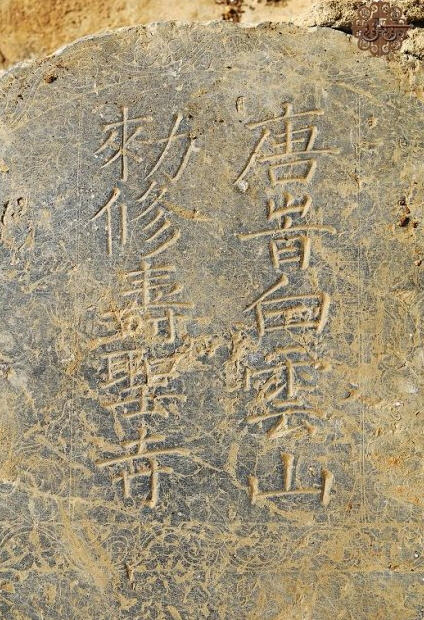 唐旹白雲山
勑修壽聖寺